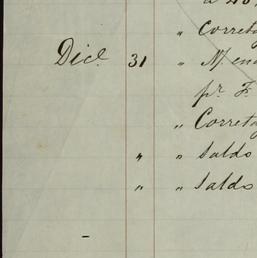 " Correta
Dice 31 " N. en
pr. F.
" Correta
" " Saldo
" " Saldo
-